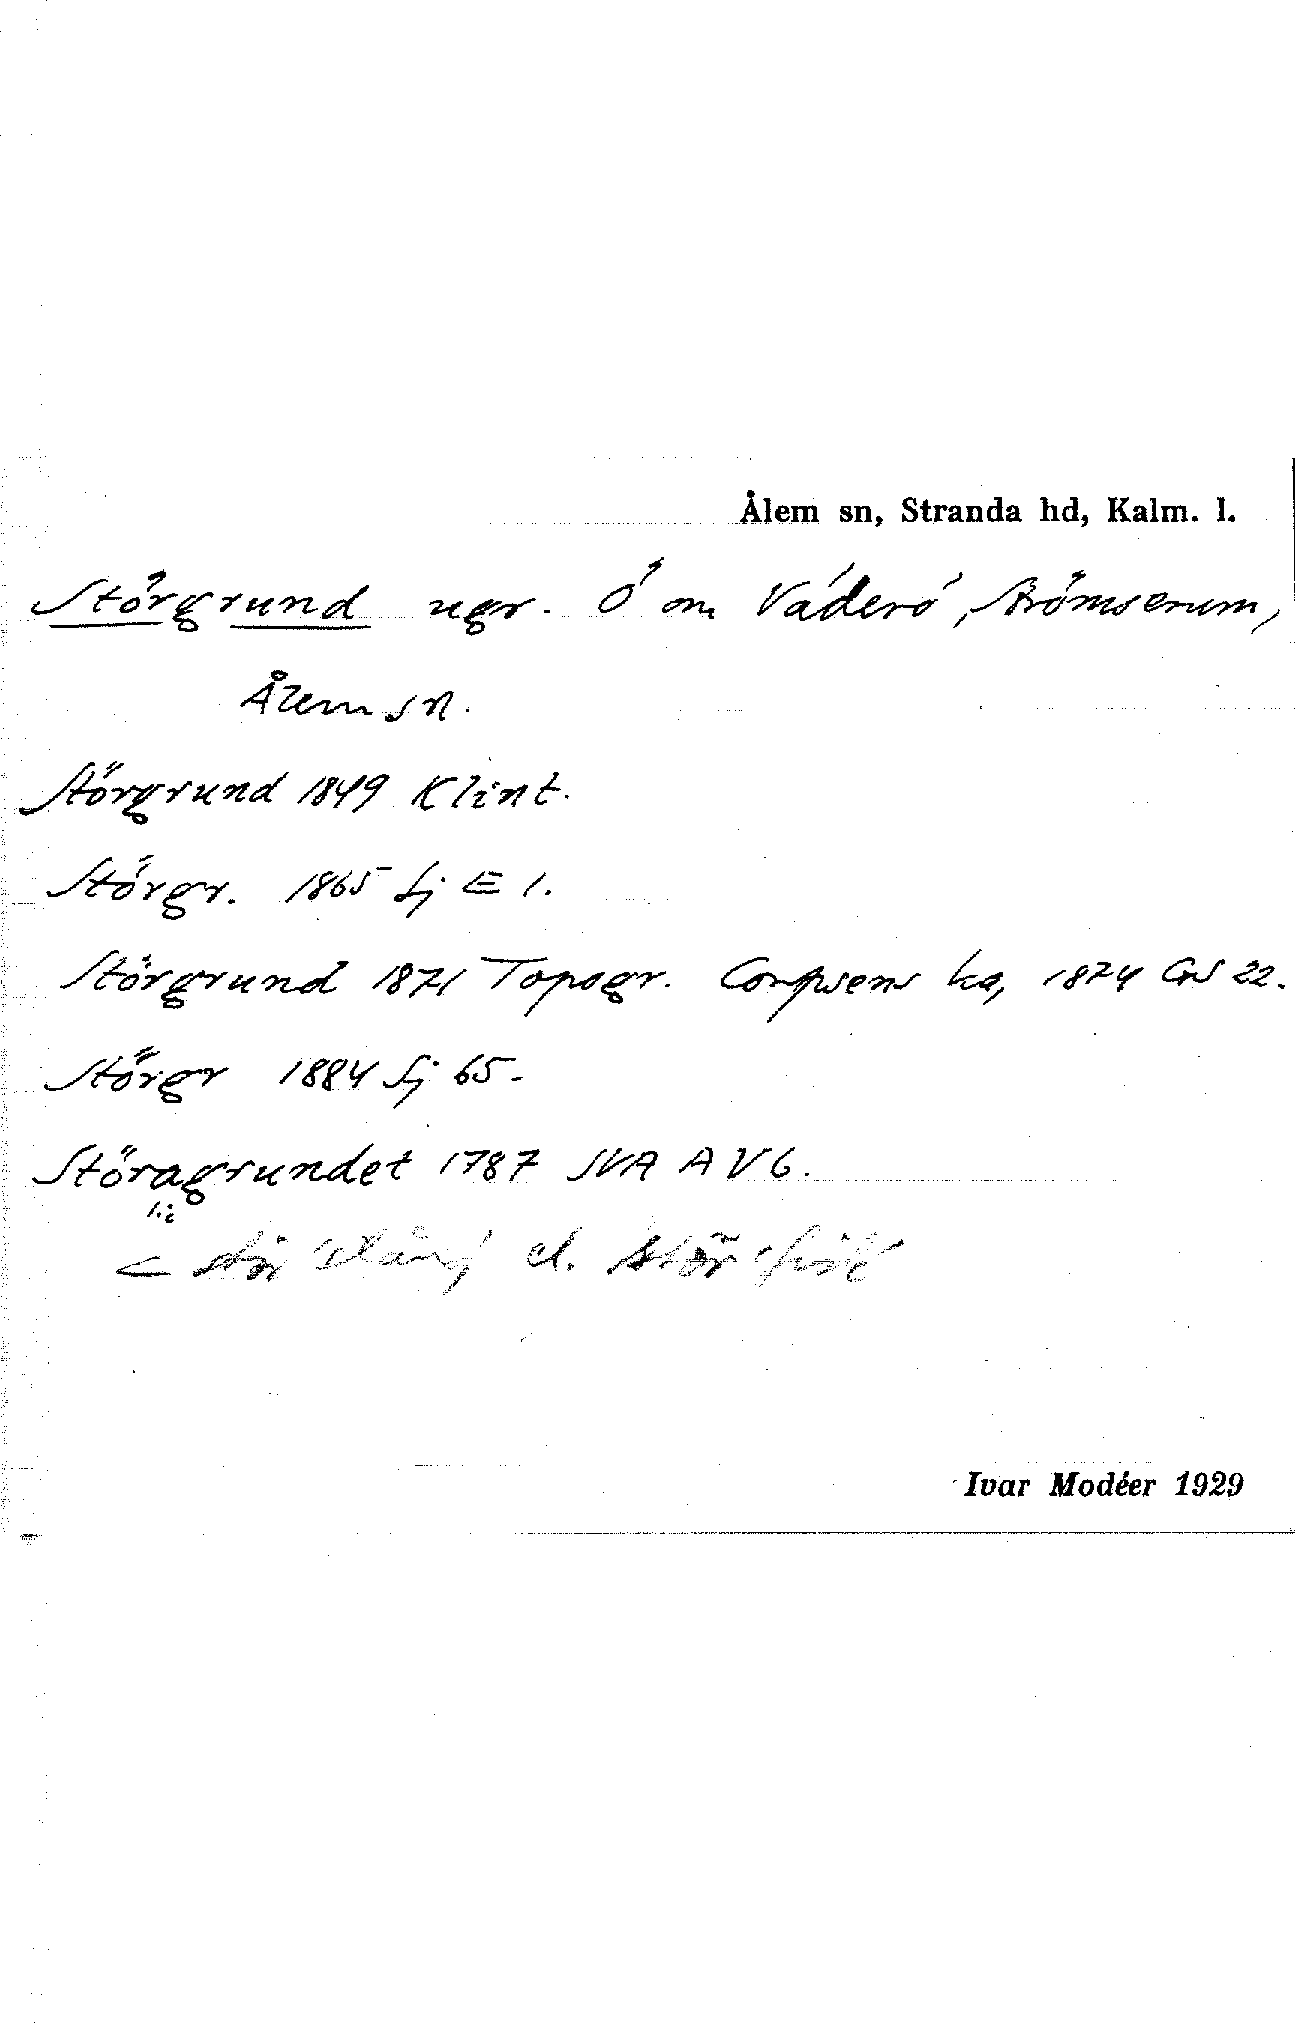 Ålem sn, Stranda hd, Kalm. l.
Störgrund ugr. Ö om Väderö, Strömserum,
Ålem sn.
Störgrund 1849 Klint.
Störgr. 1865 Sj E 1.
Störgrund 1871 Topogr. Corpsens ka, 1874 GS 22.
Störgr 1884 Sj 65.
Störagrundet 1787 SVA A V 6.
< stör 'stång' el. stör 'fisk'
Ivar Modéer 1929